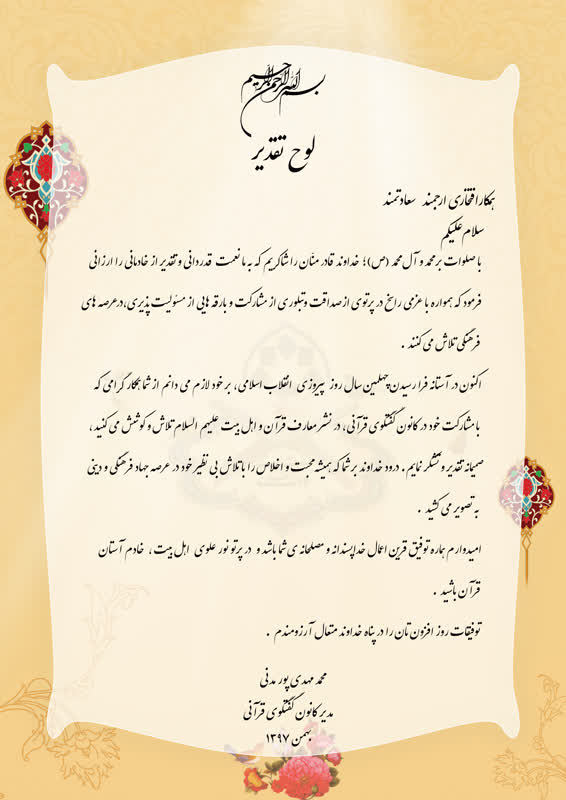 بسم الله الرحمن الرحیم
لوح تقدیر
همکار افتخاری ارجمند سعادتمند
سلام علیکم
با صلوات بر محمد و آل محمد (ص)؛ خداوند قادر منّان را شاکریم که به ما نعمت قدردانی و تقدیر از خادمانی را ارزانی
فرمود که همواره با عزمی راسخ در پرتوی از صداقت وتبلوری از مشارکت و بارقه هایی از مسئولیت پذیری،درعرصه های
فرهنگی تلاش می کنند .
اکنون در آستانه فرا رسیدن چهلمین سال روز پیروزی انقلاب اسلامی، بر خود لازم می دانم از شما همکار گرامی که
با مشارکت خود در کانون گفتگوی قرآنی، در نشر معارف قرآن و اهل بیت علیهم السلام تلاش و کوشش می کنید ،
صمیمانه تقدیر و تشکر نمایم . درود خداوند بر شما که همیشه محبت و اخلاص را با تلاش بی نظیر خود در عرصه جهاد فرهنگی و دینی
به تصویر می کشید .
امیدوارم هماره توفیق قرین اعمال خداپسندانه و مصلحانه ی شما باشد و در پرتو نور علوی اهل بیت ، خادم آستان
قرآن باشید .
توفیقات روز افزون تان را در پناه خداوند متعال آرزومندم .
محمد مهدی پور مدنی
مدیر کانون گفتگوی قرآنی
بهمن ۱۳۹۷